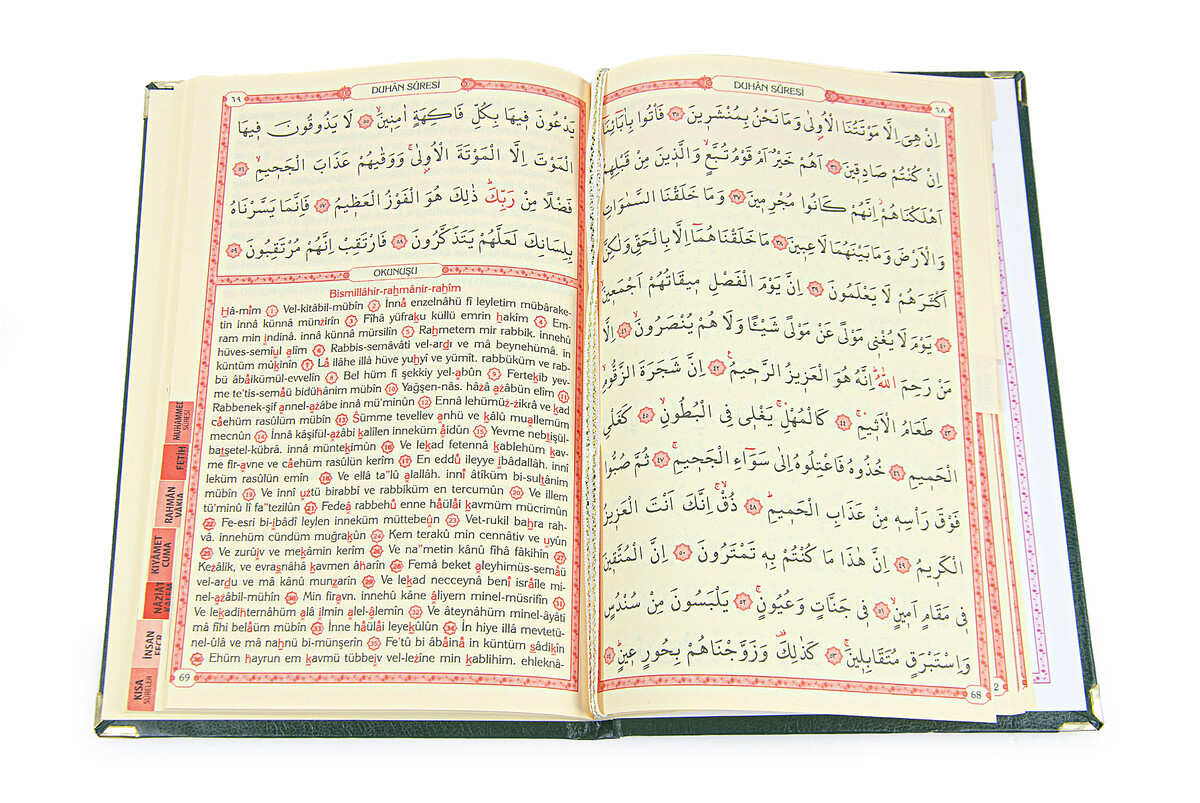 DUHÂN SÛRESİ
٦٨
اِنْ هِىَ اِلَّا مَوْتَتُنَا الْاُولٰى وَمَا نَحْنُ بِمُنْشَرٖينَ ٣٥ فَأْتُوا بِاٰبَٓائِنَٓا
اِنْ كُنْتُمْ صَادِقٖينَ ٣٦ اَهُمْ خَيْرٌ اَمْ قَوْمُ تُبَّعٍ وَالَّذٖينَ مِنْ قَبْلِهِمْ
اَهْلَكْنَاهُمْ اِنَّهُمْ كَانُوا مُجْرِمٖينَ ٣٧ وَمَا خَلَقْنَا السَّمٰوَاتِ
وَالْاَرْضَ وَمَا بَيْنَهُمَا لَاعِبٖينَ ٣٨ مَا خَلَقْنَاهُمَٓا اِلَّا بِالْحَقِّ وَلٰكِنَّ
اَكْثَرَهُمْ لَا يَعْلَمُونَ ٣٩ اِنَّ يَوْمَ الْفَصْلِ مٖيقَاتُهُمْ اَجْمَعٖينَ
٤٠ يَوْمَ لَا يُغْنٖى مَوْلًى عَنْ مَوْلًى شَيْـًٔا وَلَا هُمْ يُنْصَرُونَ ٤١ اِلَّا
مَنْ رَحِمَ اللّٰهُ اِنَّهُ هُوَ الْعَزٖيزُ الرَّحٖيمُ ٤٢ اِنَّ شَجَرَةَ الزَّقُّومِ
٤٣ طَعَامُ الْاَثٖيمِ ٤٤ كَالْمُهْلِ يَغْلٖى فِى الْبُطُونِ ٤٥ كَغَلْىِ
الْحَمٖيمِ ٤٦ خُذُوهُ فَاعْتِلُوهُ اِلٰى سَوَٓاءِ الْجَحٖيمِ ٤٧ ثُمَّ صُبُّوا
فَوْقَ رَاْسِهٖ مِنْ عَذَابِ الْحَمٖيمِ ٤٨ ذُقْ اِنَّكَ اَنْتَ الْعَزٖيزُ
الْكَرٖيمُ ٤٩ اِنَّ هٰذَا مَا كُنْتُمْ بِهٖ تَمْتَرُونَ ٥٠ اِنَّ الْمُتَّقٖينَ
فٖى مَقَامٍ اَمٖينٍ ٥١ فٖى جَنَّاتٍ وَعُيُونٍ ٥٢ يَلْبَسُونَ مِنْ سُنْدُسٍ
وَاِسْتَبْرَقٍ مُتَقَابِلٖينَ ٥٣ كَذٰلِكَ وَزَوَّجْنَاهُمْ بِحُورٍ عٖينٍ ٥٤
68
2
DUHÂN SÛRESİ
٦٩
يَدْعُونَ فٖيهَا بِكُلِّ فَاكِهَةٍ اٰمِنٖينَ ٥٥ لَا يَذُوقُونَ فٖيهَا
الْمَوْتَ اِلَّا الْمَوْتَةَ الْاُولٰى وَوَقٰيهُمْ عَذَابَ الْجَحٖيمِ ٥٦
فَضْلًا مِنْ رَبِّكَ ذٰلِكَ هُوَ الْفَوْزُ الْعَظٖيمُ ٥٧ فَاِنَّمَا يَسَّرْنَاهُ
بِلِسَانِكَ لَعَلَّهُمْ يَتَذَكَّرُونَ ٥٨ فَارْتَقِبْ اِنَّهُمْ مُرْتَقِبُونَ ٥٩
OKUNUŞU
Bismillâhir-rahmânir-rahîm
Hâ-mîm 1 Vel-kitâbil-mübîn 2 İnnâ enzelnâhü fî leyletim mübârake-
tin innâ künnâ münzirîn 3 Fîhâ yüfraku küllü emrin hakîm 4 Em-
ram min ındinâ. innâ künnâ mürsilîn 5 Rahmetem mir rabbik. innehu
hüves-semîul alîm 6 Rabbis-semâvâti vel-ardı ve mâ beynehümâ. in
küntüm mûkinîn 7 Lâ ilâhe illâ hüve yuhyî ve yümît. rabbüküm ve rab-
bü âbâikümül-evvelîn 8 Bel hüm fî şekkiy yel-abûn 9 Fertekib yev-
me te'tis-semâü bidühânim mübîn 10 Yağşen-nâs. hâzâ azâbün elîm 11
Rabbenek-şif annel-azâbe innâ mü'minûn 12 Ennâ lehümüz-zikrâ ve kad
câehüm rasûlün mübîn 13 Sümme tevellev anhü ve kâlû muallemüm
mecnûn 14 İnnâ kâşifül-azâbi kalîlen inneküm âidûn 15 Yevme nebtişül-
batşetel-kübrâ. innâ müntekımûn 16 Ve lekad fetennâ kablehüm kav-
me fir-avne ve câehüm rasûlün kerîm 17 En eddû ileyye ıbâdallâh. innî
leküm rasûlün emîn 18 Ve ellâ ta"lû alallâh. innî âtîküm bi-sultânim
mübîn 19 Ve innî uztü birabbî ve rabbiküm en tercumûn 20 Ve illem
tü'minû lî fa"tezilûn 21 Fedeâ rabbehû enne hâülâi kavmüm mücrimûn
22 Fe-esri bi-ıbâdî leylen inneküm müttebeûn 23 Vet-rukil bahra rah-
vâ. innehüm cündüm muğrakûn 24 Kem terakû min cennâtiv ve uyûn
25 Ve zurûıv ve mekâmin kerîm 26 Ve na"metin kânû fîhâ fâkihîn 27
Kezâlik, ve evrasnâhâ kavmen âharîn 28 Femâ beket aleyhimüs-semâü
vel-ardu ve mâ kânû munzarîn 29 Ve lekad necceynâ benî isrâîle mi-
nel-azâbil-mühîn 30 Min firavn. innehû kâne âliyem minel-müsrifîn 31
Ve lekadihternâhüm alâ ılmin alel-âlemîn 32 Ve âteynâhüm minel-âyâti
mâ fîhi belâüm mübîn 33 İnne hâülâi leyekûlûn 34 İn hiye illâ mevtetü-
nel-ûlâ ve mâ nahnü bi-münşerîn 35 Fe'tû bi âbâinâ in küntüm sâdikîn
36 Ehüm hayrun em kavmü tübbeıv vel-lezîne min kablihim. ehleknâ-
69
MUHAMMED SÛRESİ
FETİH
RAHMÂN
VÂKIA
KIYAMET
CUMA
NÂZİÂT
İNSAN
KISA
SÛRELER